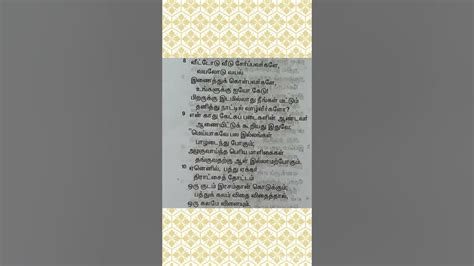 8 வீட்டோடு வீடு சேர்ப்பவர்களே,
வயலோடு வயல்
இணைத்துக் கொள்பவர்களே,
உங்களுக்கு ஐயோ கேடு!
பிறருக்கு இடமில்லாது நீங்கள் மட்டும்
தனித்து நாட்டில் வாழ்வீர்களோ?
9 என் காது கேட்கப் படைகளின் ஆண்டவர்
ஆணையிட்டுக் கூறியது இதுவே:
"மெய்யாகவே பல இல்லங்கள்
பாழடைந்து போகும்;
அழகுவாய்ந்த பெரிய மாளிகைகள்
தங்குவதற்கு ஆள் இல்லாமற்போகும்.
10 ஏனெனில், பத்து ஏக்கர்
திராட்சைத் தோட்டம்
ஒரு குடம் இரசம்தான் கொடுக்கும்;
பத்துக் கலம் விதை விதைத்தால்,
ஒரு கலமே விளையும்.